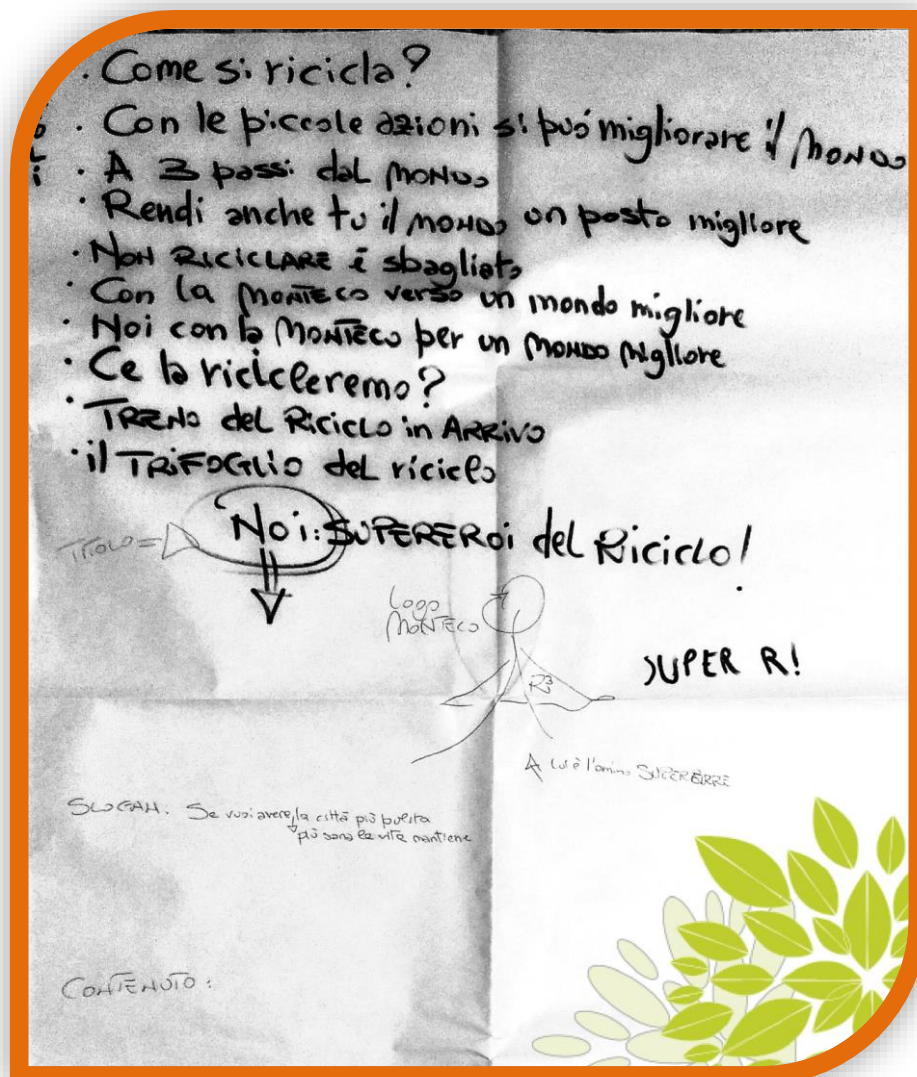 · Come si ricicla?
· Con le piccole azioni si può migliorare il MONDO
· A 3 passi dal MONDO
· Rendi anche tu il MONDO un posto migliore
· NON RICICLARE è sbagliato
· Con la MONTECO verso un mondo migliore
· Noi con la MONTECO per un MONDO Migliore
· Ce la ricicleremo?
· TRENO del RiciCLO in ARRIVO
· il TRIFOGLIO del riciclo
Noi: SUPEREROi del RiciCLO!
logo
MONTECO
R3
SUPER R!
lui è l'omino SUPERERRE
SLOGAN. Se vuoi avere la città più pulita
più sana la vita mantiene
CONTENUTO: